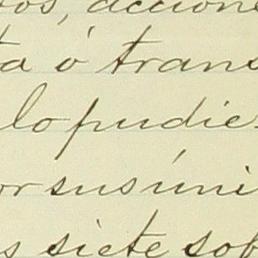 os, accione
ta ó trans
lo pudie
or sus úni
s siete sob